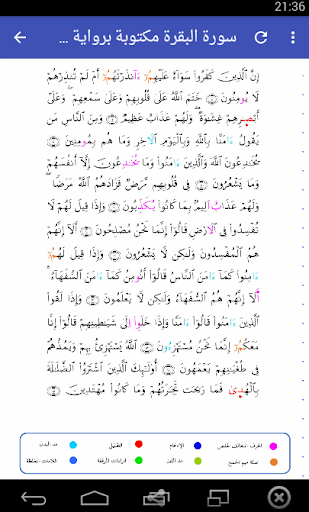 21:36
سورة البقرة مكتوبة برواية ...
إِنَّ ٱلَّذِينَ كَفَرُواْ سَوَآءٌ عَلَيْهِمُۥٓ ءَآنذَرْتَهُمُۥٓ أَمْ لَمْ تُنذِرْهُمْ
لَا يُومِنُونَ ۝ خَتَمَ ٱللَّهُ عَلَىٰ قُلُوبِهِمْ وَعَلَىٰ سَمْعِهِمْ وَعَلَىٰٓ
أَبْصٰرِهِمْ غِشَٰوَةٌ وَلَهُمْ عَذَابٌ عَظِيمٌ ۝ وَمِنَ ٱلنَّاسِ مَنْ
يَقُولُ ءَامَنَّا بِٱللَّهِ وَبِٱلْيَوْمِ ٱلَاخِرِ وَمَا هُم بِمُومِنِينَ ۝
يُخَٰدِعُونَ ٱللَّهَ وَٱلَّذِينَ ءَامَنُواْ وَمَا يُخَٰدِعُونَ إِلَّآ أَنفُسَهُمْ
وَمَا يَشْعُرُونَ ۝ فِي قُلُوبِهِم مَّرَضٌ فَزَادَهُمُ ٱللَّهُ مَرَضًا
وَلَهُمْ عَذَابٌ اَلِيمٌ بِمَا كَانُواْ يُكَذِّبُونَ ۝ وَإِذَا قِيلَ لَهُمْ لَا
تُفْسِدُواْ فِي ٱلَارْضِ قَالُوٓاْ إِنَّمَا نَحْنُ مُصْلِحُونَ ۝ أَلَآ إِنَّهُمْ
هُمُ ٱلْمُفْسِدُونَ وَلَٰكِن لَّا يَشْعُرُونَ ۝ وَإِذَا قِيلَ لَهُمُۥٓ
ءَامِنُواْ كَمَآ ءَامَنَ ٱلنَّاسُ قَالُوٓاْ أَنُومِنُ كَمَآ ءَامَنَ ٱلسُّفَهَآءُ
أَلَآ إِنَّهُمْ هُمُ ٱلسُّفَهَآءُ وَلَٰكِن لَّا يَعْلَمُونَ ۝ وَإِذَا لَقُواْ
ٱلَّذِينَ ءَامَنُواْ قَالُوٓاْ ءَامَنَّا وَإِذَا خَلَوِاْ اِلَىٰ شَيَٰطِينِهِمْ قَالُوٓاْ إِنَّا
مَعَكُمُۥٓ إِنَّمَا نَحْنُ مُسْتَهْزِءُونَ ۝ ٱللَّهُ يَسْتَهْزِئُ بِهِمْ وَيَمُدُّهُمْ
فِي طُغْيَٰنِهِمْ يَعْمَهُونَ ۝ أُوْلَٰٓئِكَ ٱلَّذِينَ ٱشْتَرَوُاْ ٱلضَّلَٰلَةَ
بِٱلْهُدَىٰ فَمَا رَبِحَت تِّجَٰرَتُهُمْ وَمَا كَانُواْ مُهْتَدِينَ ۝
الحرف المخالف لحفص الإدغام التقليل مد البدل
صلة ميم الجمع مد اللين الراءات المرققة اللامات المغلظة